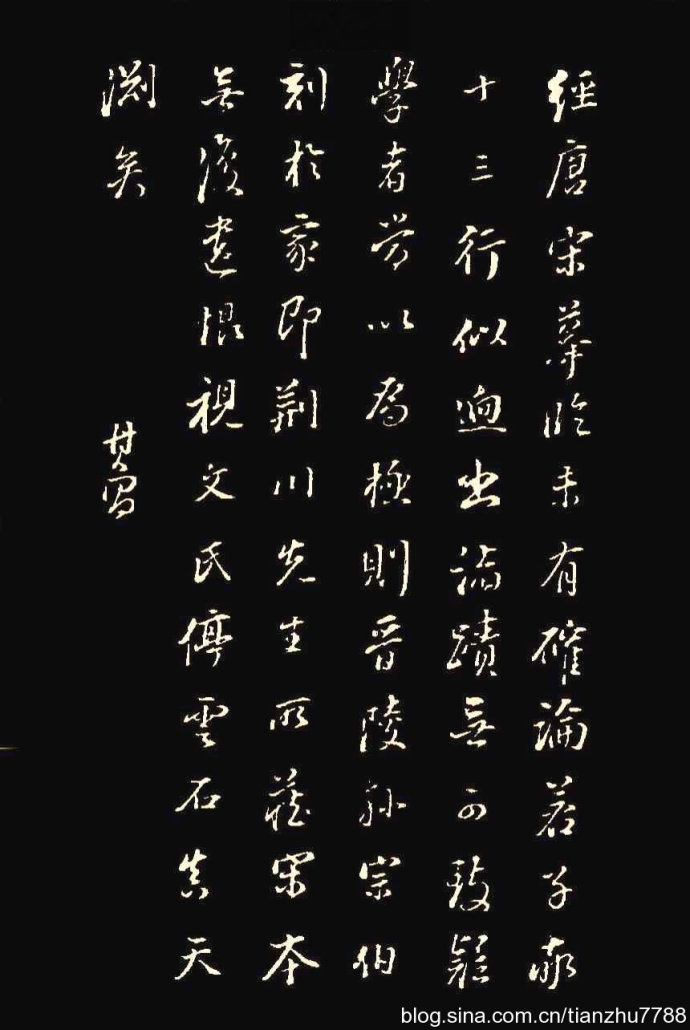 經唐宋摹臨未有確論若子敬
十三行似迥出諸蹟無可致疑
學者當以為極則晉陵孫宗伯
刻於家即荊川先生所藏宋本
無復遺恨視文氏停雲石真天
淵矣
其昌
blog.sina.com.cn/tianzhu7788